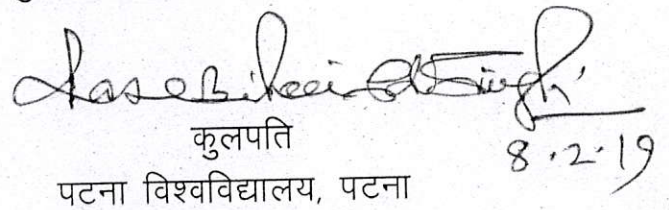 कुलपति
8.2.19
पटना विश्वविद्यालय, पटना